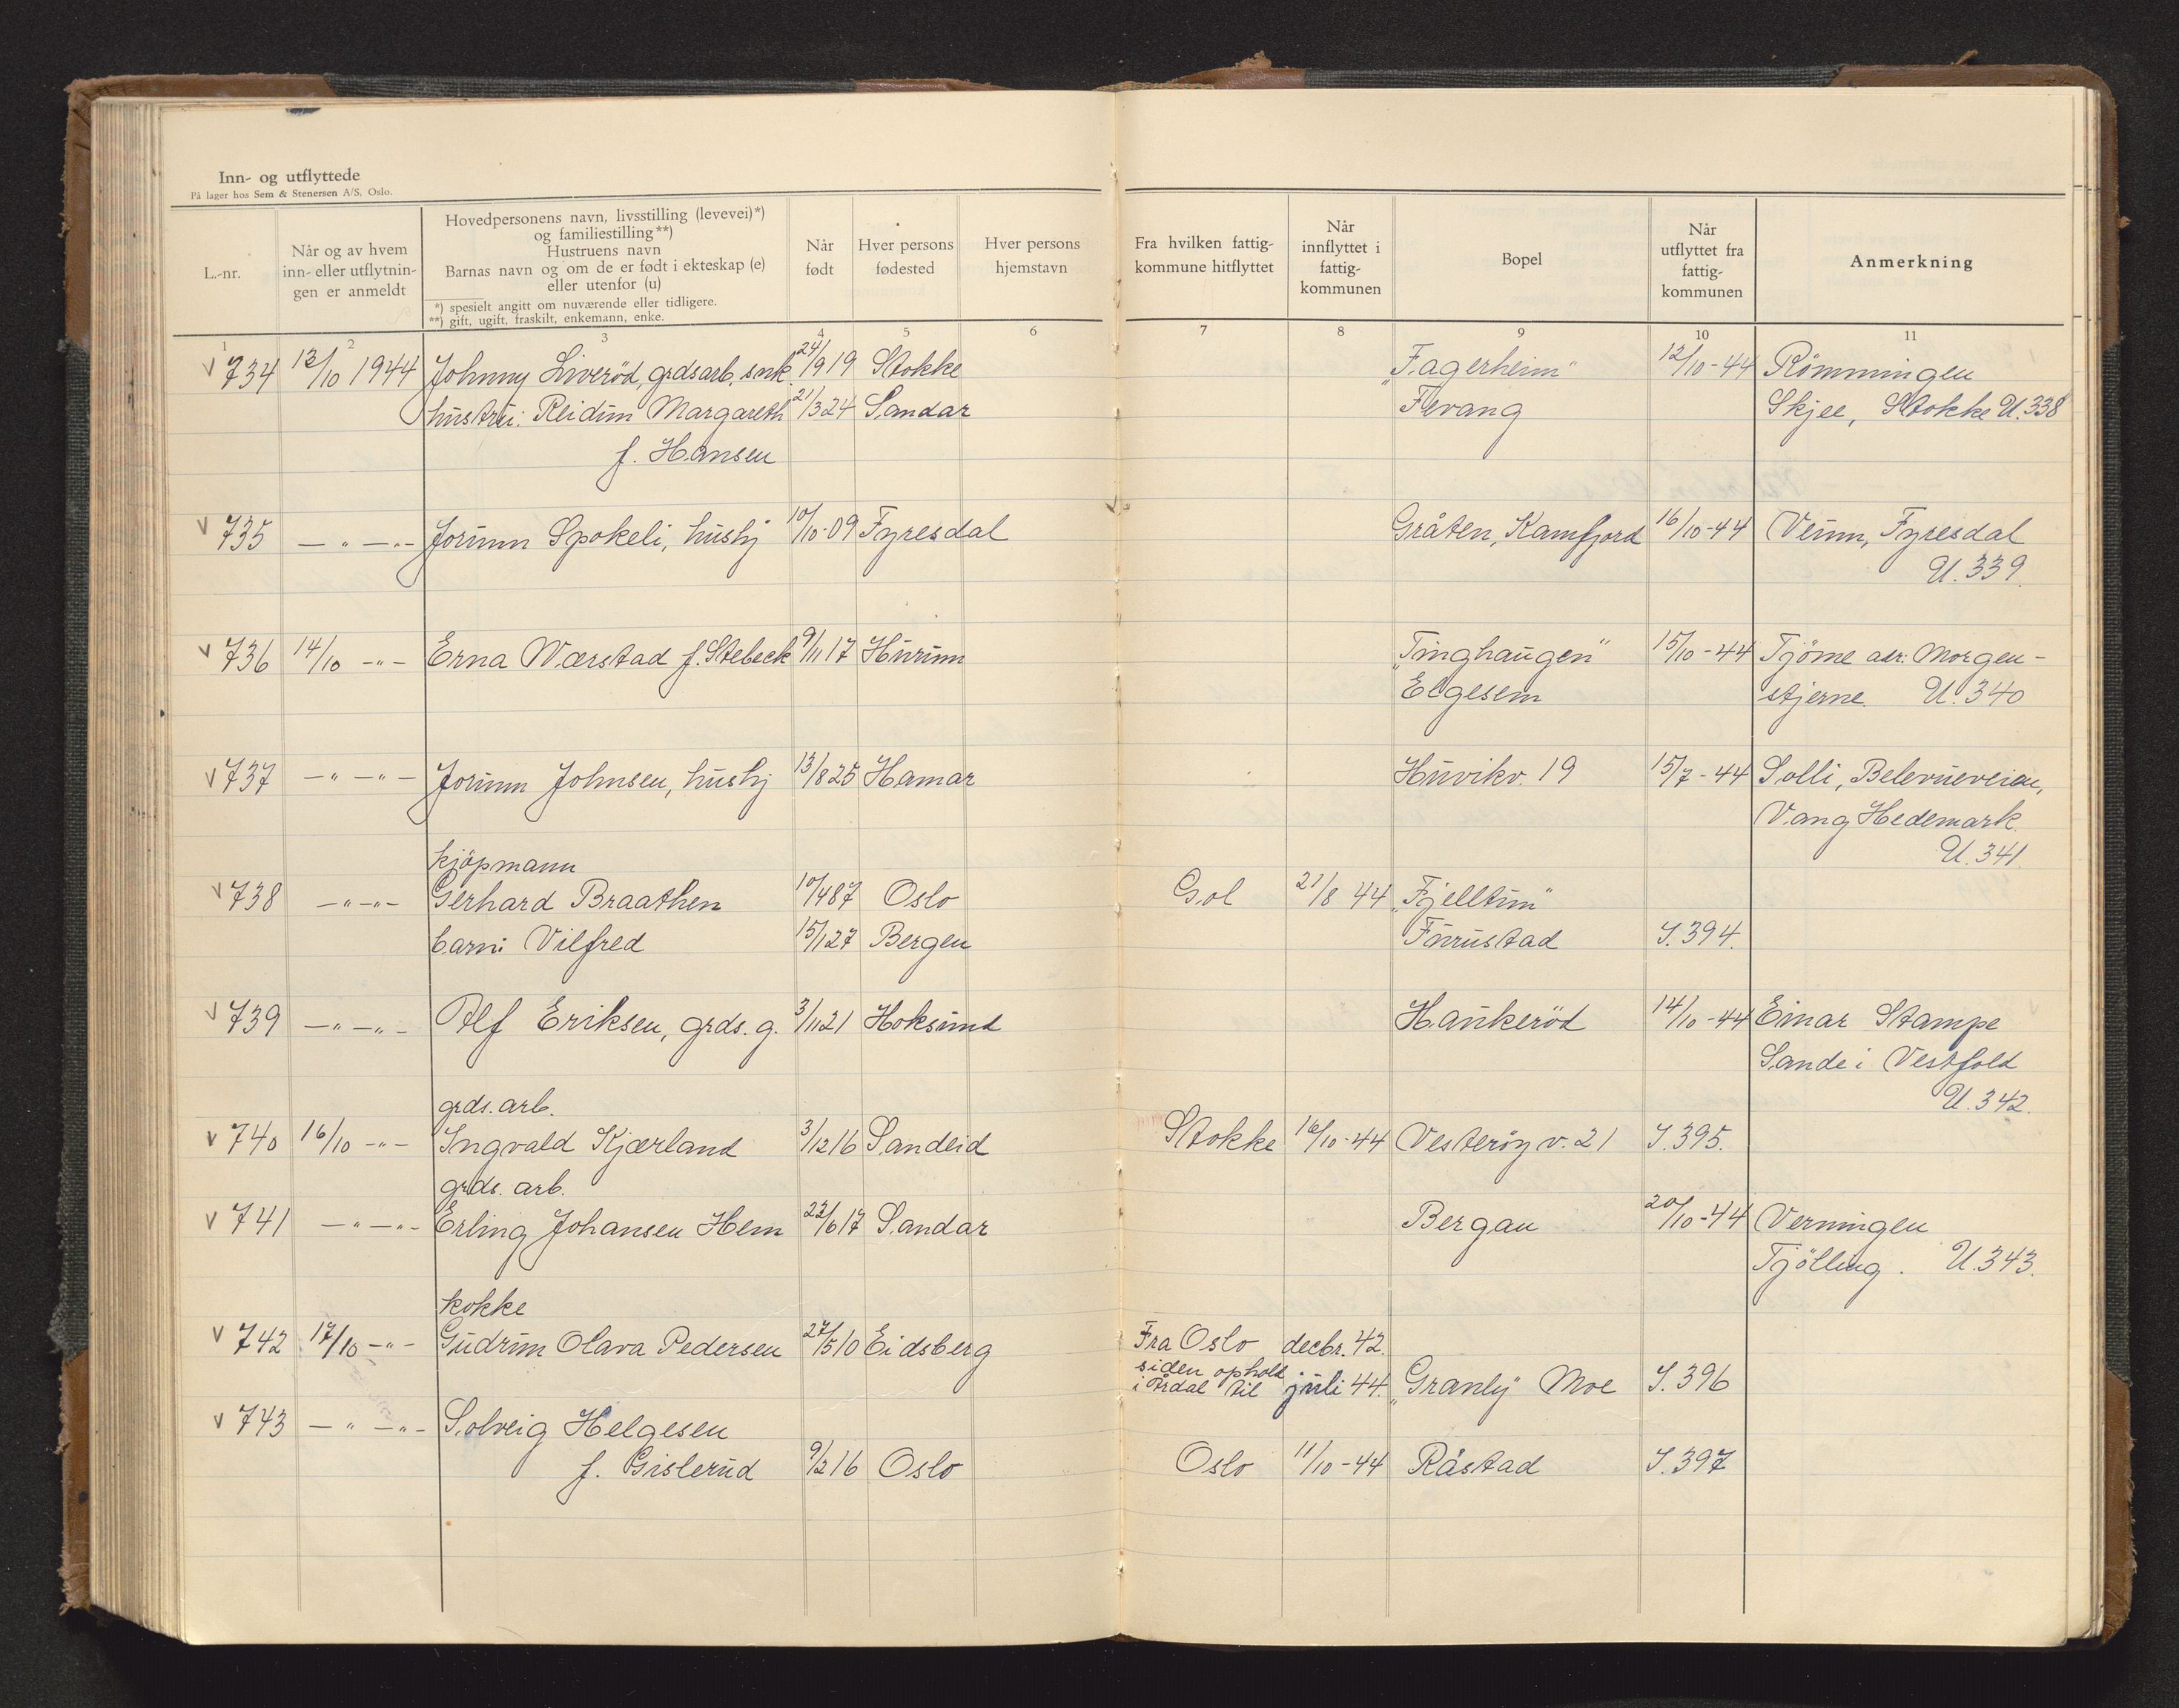 Inn- og utflyttede
På lager hos Sem & Stenersen A/S, Oslo.
L.-nr.
Når og av hvem
inn- eller utflytnin-
gen er anmeldt
Hovedpersonens navn, livsstilling (levevei)*)
og familiestilling**)
Hustruens navn
Barnas navn og om de er født i ekteskap (e)
eller utenfor (u)
*) spesielt angitt om nuværende eller tidligere.
**) gift, ugift, fraskilt, enkemann, enke.
Når
født
Hver persons
fødested
Hver persons
hjemstavn
Fra hvilken fattig-
kommune hitflyttet
Når
innflyttet i
fattig-
kommunen
Bopel
Når
utflyttet fra
fattig-
kommunen
Anmerkning
1 2 3 4 5 6 7 8 9 10 11
v 734 12/10 1944 Johnny Liverød, grdsarb. snk. 24/9 19 Stokke "Fagerheim" 12/10-44 Römmingen
hustru: Reidun Margareth 21/3 24 Sandar Fevang Skjee, Stokke U.338
f. Hansen
v 735 —„—„— Jorunn Spokeli, hushj 10/10-09 Fyresdal Gråten, Kamfjord 16/10-44 Veum, Fyresdal
U.339.
v 736 14/10 —„— Erna Wærstad f. Stebeck 9/11 17 Hurum „Tinghaugen" 15/10-44 Tjöme adr: Morgen-
Elgesem stjerne. U.340
v 737 —„—„— Jorunn Johnsen, hushj 13/8 25 Hamar Huvikv. 19 15/7-44 Solli, Belevueveien,
Vang Hedemark.
U.341.
kjöpmann
v 738 —„—„— Gerhard Braathen 10/4 87 Oslo Gol 21/8 44 „Fjelltun"
barn: Vilfred 15/1 27 Bergen Furustad I.394.
v 739 —„—„— Alf Eriksen, grds. g. 3/11 21 Hoksund Haukerød 14/10-44 Einar Stampe
Sande i Vestfold
U.342.
grds. arb.
v 740 16/10 —„— Ingvald Kjærland 3/12 16 Sandeid Stokke 16/10-44 Vesteröy v. 21 I.395.
grds. arb.
v 741 —„—„— Erling Johansen Hem 22/6 17 Sandar Bergan 20/10-44 Verningen
Tjölling. U.343.
kokke
v 742 17/10 —„— Gudrun Olava Pedersen 27/5 10 Eidsberg Fra Oslo decbr. 42.
siden ophold
i Årdal til juli 44. „Granly" Moe I.396
v 743 —„—„— Solveig Helgesen
f. Gislerud 9/2 16 Oslo Oslo 11/10-44 Råstad I.397